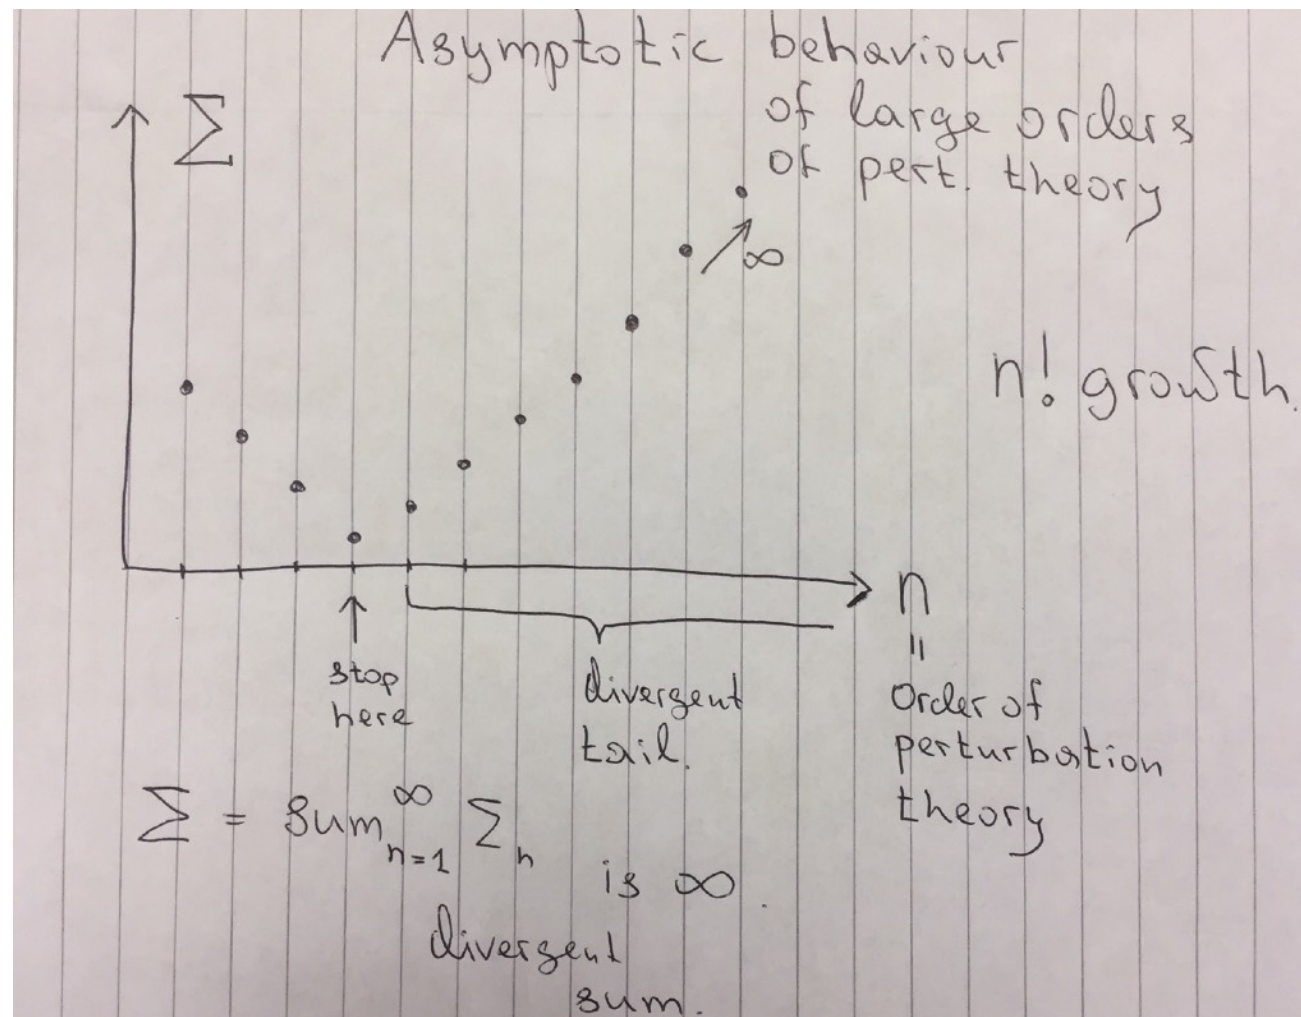 Asymptotic behaviour
of large orders
of pert. theory
Σ
∞
n! growth.
n
=
Order of
perturbation
theory
stop
here
divergent
tail.
Σ = Sum_{n=1}^∞ Σ_n is ∞.
divergent
sum.